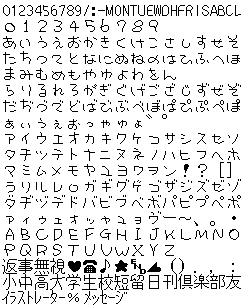 0123456789/:-MONTUEWDHFRISABCL
0 1 2 3 4 5 6 7 8 9
あいうえおかきくけこさしすせそ
たちつてとなにぬねのはひふへほ
まみむめもやゆよわをん
らりるれろがぎぐげござじずぜぞ
だぢづでどばびぶべぼぱぴぷぺぽ
ぁぃぅぇぉっゃゅょ゛゜
アイウエオカキクケコサシスセソ
タチツテトナニヌネノハヒフヘホ
マミムメモヤユヨワヲン!?[]
ラリルレロガギグゲゴザジズゼゾ
ダヂヅデドバビブベボパピプペポ
ァィゥェォッャュョヴー~、。・
ABCDEFGHIJKLMNO
PQRSTUVWXYZ
返事無視♥☎♪★()
小中高大学生校短留日刊倶楽部友
イラストレーター%メッセージ